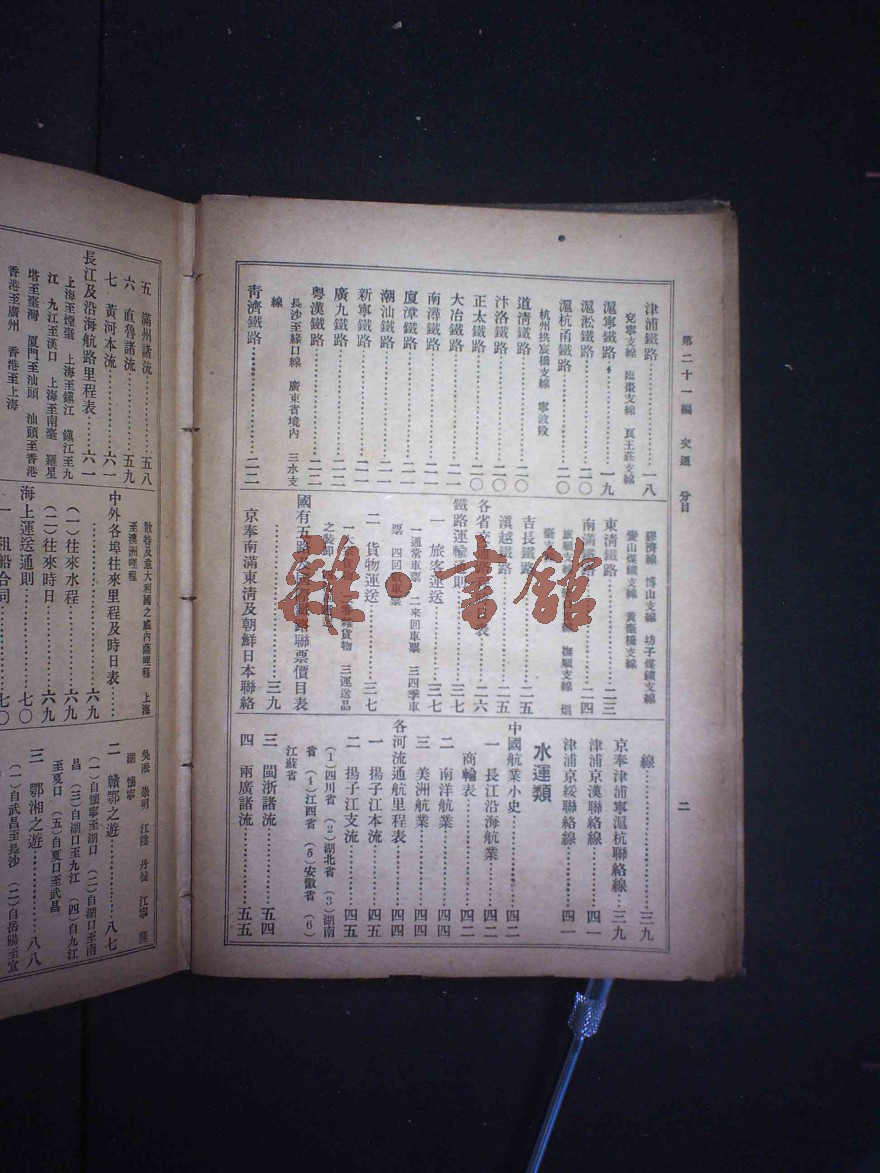 第二十一編 交通 分目
二
津浦鐵路………………一八
兗寧支線 臨棗支線 良王莊支線
滬寧鐵路………………一九
滬淞鐵路………………二〇
滬杭甬鐵路………………二〇
杭州拱宸橋支線 寧波段
道清鐵路………………二〇
汴洛鐵路………………二〇
正太鐵路………………二〇
大冶鐵路………………二一
南潯鐵路………………二一
廈漳鐵路………………二一
潮汕鐵路………………二一
新寧鐵路………………二一
廣九鐵路………………二二
粵漢鐵路………………二二
長沙至綠口線 廣東省境內 三水支
線
青濟鐵路………………二二
膠濟線 博山支線 坊子煤鑛支線
黌山煤鑛支線 黃臺橋支線
東清鐵路………………二三
南滿鐵路………………二四
撫順支線 烟
吉長鐵路………………二五
滇越鐵路………………二五
二六
鐵路運輸通則………………二七
一 旅客運送………………二七
一通常車票 二來回車票 三四季車
票 四回數車票
二 貨物運送………………三七
三運送品
國有五路
聯票價目表
………………三九
京奉南滿東清及朝鮮日本聯絡
線………………三九
京奉津浦寧滬杭聯絡線……三九
津浦京漢聯絡線………………四一
津浦京綏聯絡線………………四一
水運類
中國航業小史………………四二
一 長江沿海航業………………四二
商輪表………………四二
二 南洋航業………………四四
三 美洲航業………………四四
各河流通航里程表………………四四
一 揚子江本流………………四五
二 揚子江支流………………四五
(1)四川省 (2)湖北省 (3)湖南
省 (4)江西省 (5)安徽省 (6)
江蘇省
三 閩浙諸流………………五四
四 兩廣諸流………………五五
五 滿州諸流………………五八
六 直魯諸流………………五九
七 黃河本流………………六一
長江及沿海航路里程表……六一
上海至煙臺 上海至鎮江 鎮江至九
江 九江至漢口 上海至南臺 羅星
塔至臺灣 厦門至汕頭 汕頭至香港
香港至廣州 香港至上海
散特及意大利國之威內薩哩程 上海
至澳洲哩程
中外各埠往來里程及時日表……
………………六九
(一)往來水程………………六九
(二)往來時日………………六九
海上運送通則………………七〇
一 租船合同………………七〇
吳淞 崇明 江陰 丹徒 江寧 蕪
湖 懷寧
二 贛鄂之遊………………八七
(一)自懷寧至湖口 (二)自湖口至南
昌 (三)自湖口至九江 (四)自九江
至夏口 (五)自夏口至武昌
三 鄂湘之遊………………八八
(一)自武昌至長沙 (二)自岳陽至宜
雜·書館